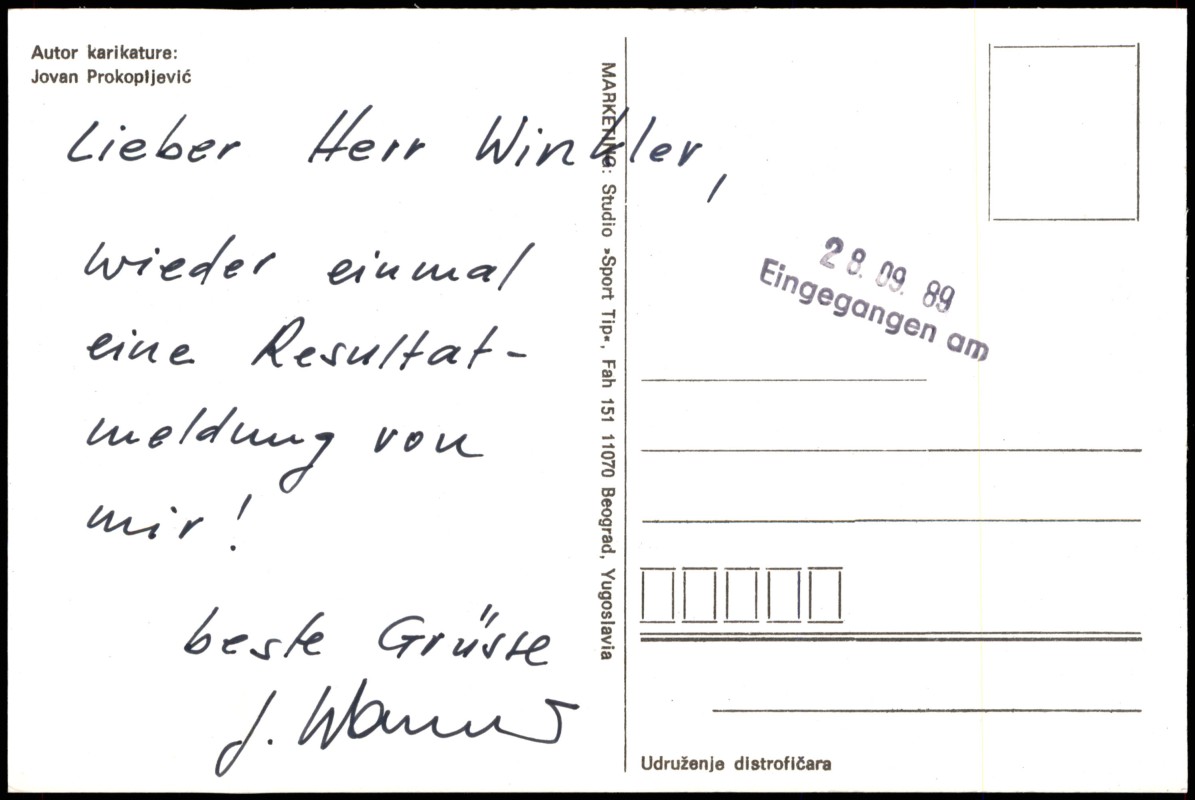 Autor karikature:
Jovan Prokopljević
Lieber Herr Winkler,
wieder einmal
eine Resultat-
meldung von
mir!
beste Grüsse
J.
MARKETING: Studio »Sport Tip«, Fah 151 11070 Beograd, Yugoslavia
28.09.89
Eingegangen am
Udruženje distrofičara